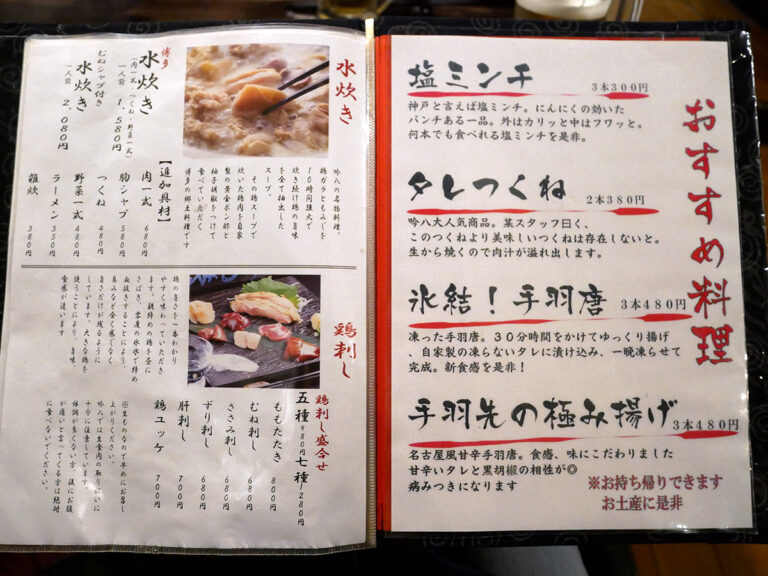 おすすめ料理
塩ミンチ 3本300円
神戸と言えば塩ミンチ。にんにくの効いた
パンチある一品。外はカリッと中はフワッと。
何本でも食べれる塩ミンチを是非。
タレつくね 2本380円
吟八大人気商品。某スタッフ曰く、
このつくねより美味しいつくねは存在しないと。
生から焼くので肉汁が溢れ出します。
氷結！手羽唐 3本480円
凍った手羽唐。３０分時間をかけてゆっくり揚げ
、自家製の凍らないタレに漬け込み、一晩凍らせて
完成。新食感を是非！
手羽先の極み揚げ 3本480円
名古屋風甘辛手羽唐。食感、味にこだわりました
甘辛いタレと黒胡椒の相性が◎
病みつきになります
※お持ち帰りできます
お土産に是非
水炊き
吟八の名物料理
鶏ガラともみじを
10時間強火で
炊き続け鶏の旨味
を全て抽出した
スープ
その鶏スープで
炊いた鶏肉を自家
製の黄金ポン酢と
柚子胡椒をつけて
食べていただく
博多の郷土料理です
博多
水炊き
(肉一式、つくね・野菜一式)
一人前 1,580円
むねシャブ付き
水炊き
一人前 2,080円
【追加具材】
肉一式 680円
胸シャブ 580円
つくね 480円
野菜一式 480円
ラーメン 350円
雑炊 380円
鶏刺し
鶏の旨さを一番わかり
やすく味わっていただき
ます。朝締めの鶏を昼に
さばき、零度の氷水で締め
血抜きすることにより
臭みなどを全く感じなく
旨さだけが残るよう
しています。大きな鶏を
使うことにより、旨味、
食感が違います
鶏刺し盛合せ
五種 980円 七種 1,280円
ももたたき 800円
むね刺し 680円
ささみ刺し 680円
ずり刺し 680円
肝刺し 700円
鶏ユッケ 700円
※生ものなので早めにお召し
上がりください。
吟八では生食肉の取り扱いに
十分に注意しています。
体調が良くない方、後にお腹
が痛いと言ってくる方は絶対
に食べないでください。